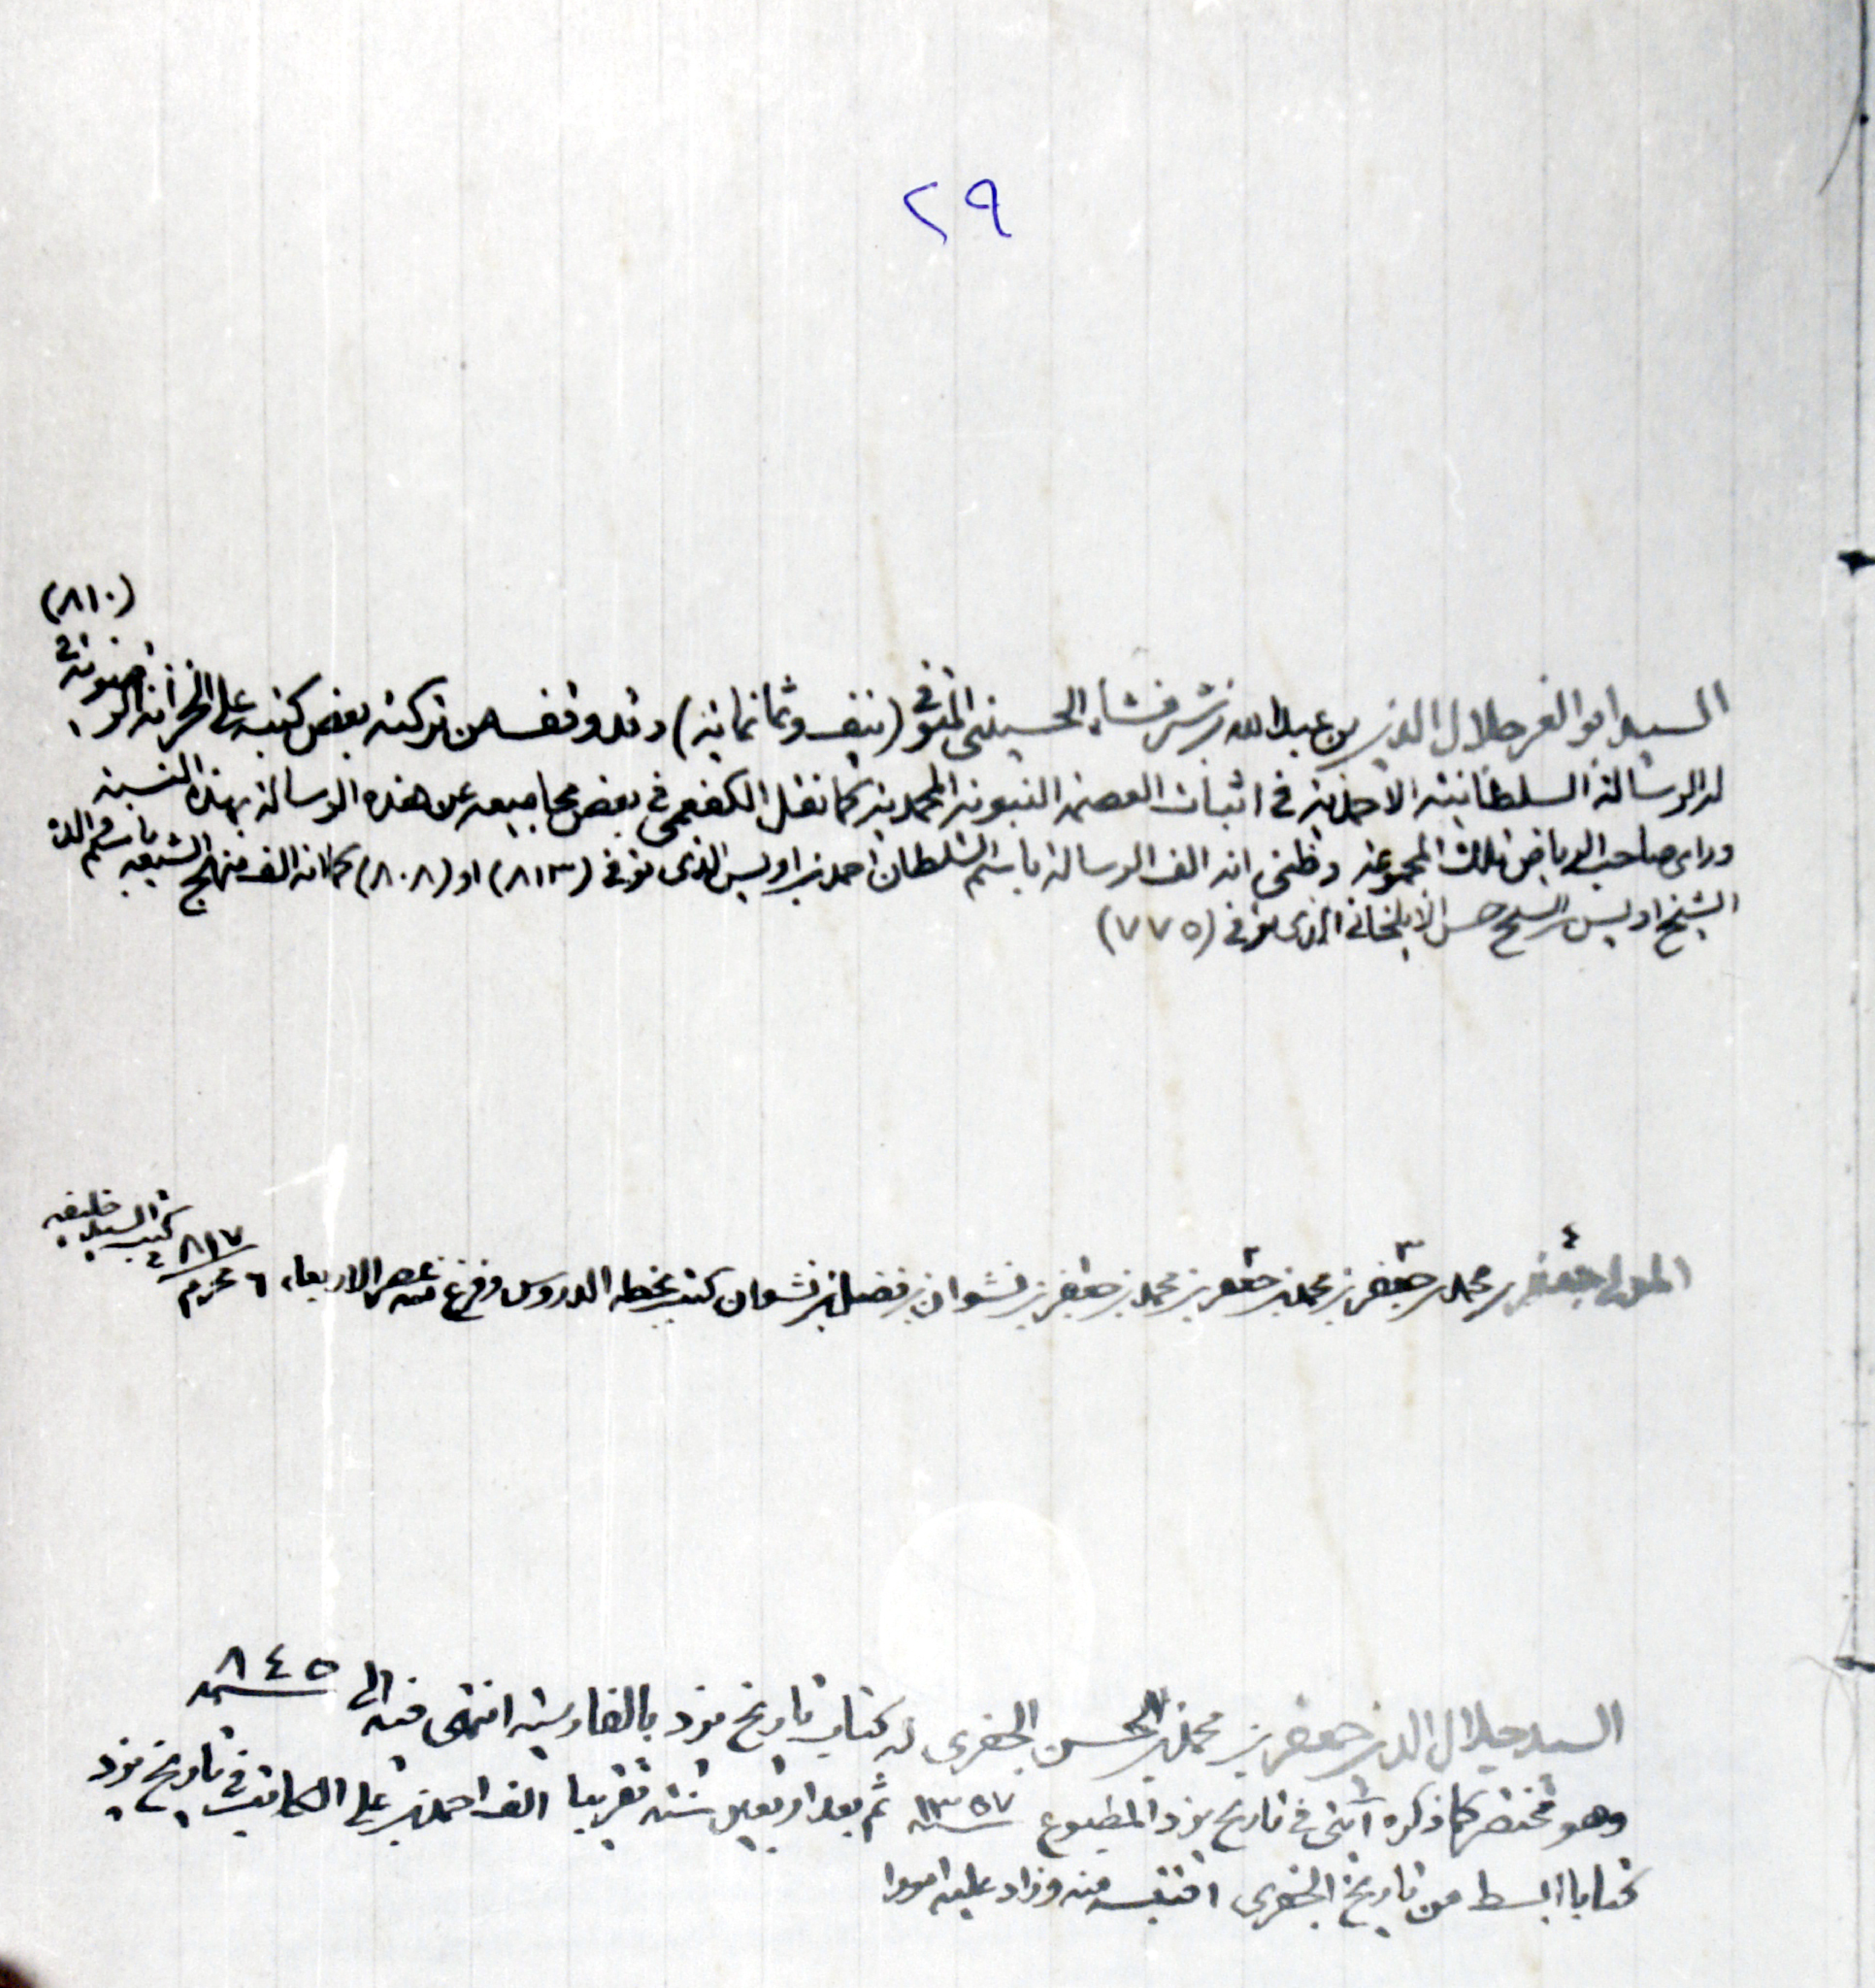 ٢٩
(٨١٠)
السيد ابو العز جلال الدين بن عبد الله بن شرفشاه الحسيني المتوفى (نيف وثمانمائة) وقد وقف من تركته بعض كتبه على الخزانة الغروية
له الرسالة السلطانية الاحمدية في اثبات العصمة النبوية المحمدية كما نقل الكفعمي في بعض مجاميعه عن هذه الرسالة بهذه النسبة
وراى صاحب الرياض تلك المجموعة وظني انه الف الرسالة باسم السلطان احمد بن اويس الذى توفى (٨١٣) او (٨٠٨) كما انه الف منهج الشيعة باسم
الشيخ اويس بن الشيخ حسن الايلخاني الذى توفى (٧٧٥)
المولى جعفر بن محمد بن جعفر بن محمد بن جعفر بن محمد بن جعفر بن نشوان بن فضل بن نشوان كتب بخطه الدروس وفرغ منه عصر الاربعاء ٦ محرم ٨١٧
كتب السيد خليفه
السيد جلال الدين جعفر بن محمد بن الحسن الجعفرى له كتاب تاريخ يزد بالفارسية انتهى فيه الى سنة ٨٤٥
وهو مختصر كما ذكره آيتى في تاريخ يزد المطبوع سنة ١٣٥٧ ثم بعد اربعين سنة تقريبا الف احمد بن على الكاتب في تاريخ يزد
كتابا ابسط من تاريخ الجعفرى اقتبسه منه وزاد عليه امورا